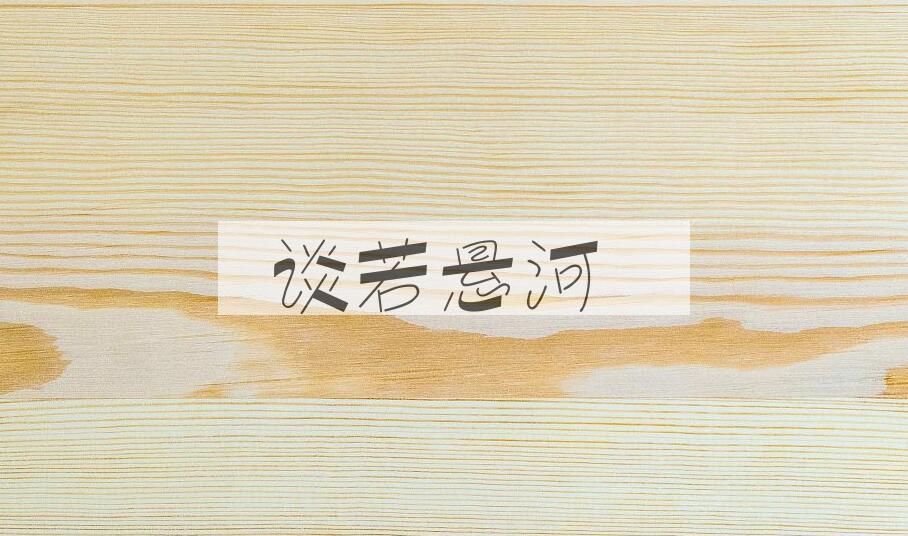 谈若悬河